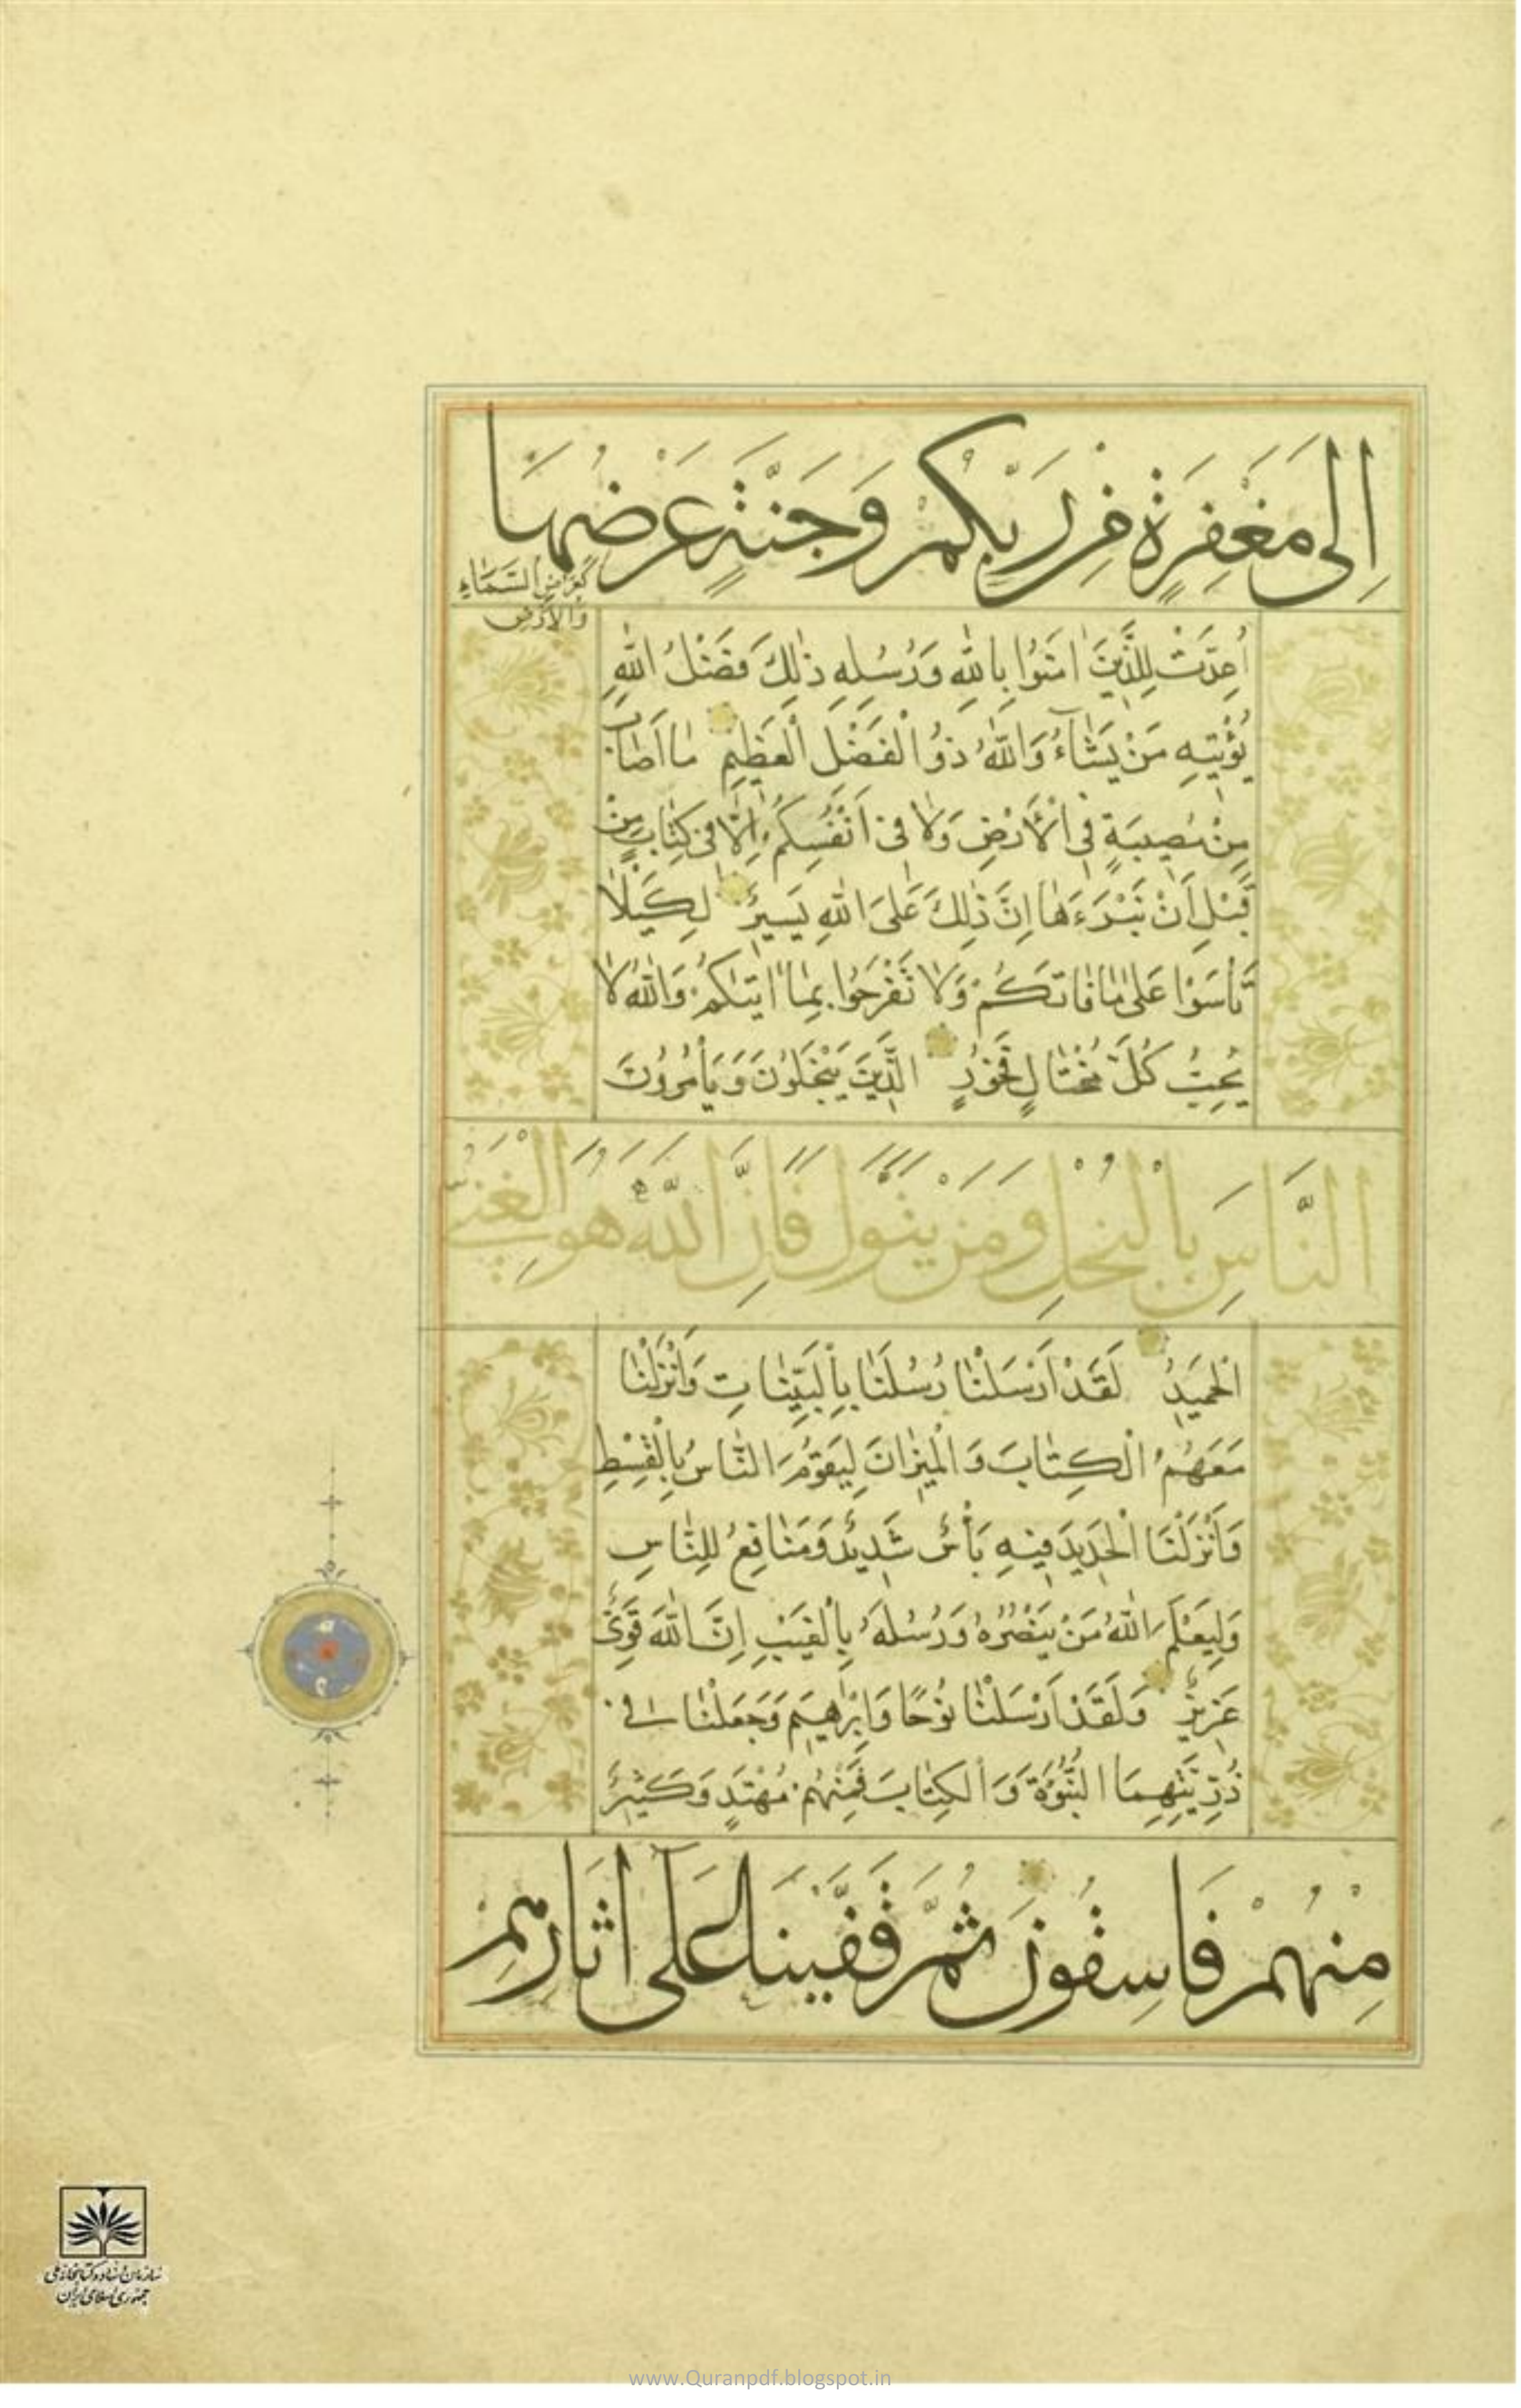 اِلى مَغْفِرَةٍ مِنْ رَبِّكُمْ وَجَنَّةٍ عَرْضُهَا
كَعَرْضِ السَّمَاءِ
وَالْاَرْضِ
اُعِدَّتْ لِلَّذِينَ اٰمَنُوا بِاللّٰهِ وَرُسُلِهِ ذٰلِكَ فَضْلُ اللّٰهِ
يُؤْتِيهِ مَنْ يَشَآءُ وَاللّٰهُ ذُو الْفَضْلِ الْعَظِيمِ مٰا اَصٰابَ
مِنْ مُصِيبَةٍ فِى الْاَرْضِ وَلٰا فِى اَنْفُسِكُمْ اِلّٰا فِى كِتٰابٍ مِنْ
قَبْلِ اَنْ نَبْرَءَهٰا اِنَّ ذٰلِكَ عَلَى اللّٰهِ يَسِيرٌ لِكَيْلٰا
تَأْسَوْا عَلىٰ مٰا فٰاتَكُمْ وَلٰا تَفْرَحُوا بِمٰا اٰتٰيكُمْ وَاللّٰهُ لٰا
يُحِبُّ كُلَّ مُخْتٰالٍ فَخُورٍ الَّذِينَ يَبْخَلُونَ وَيَأْمُرُونَ
النَّاسَ بِالْبُخْلِ وَمَنْ يَتَوَلَّ فَاِنَّ اللّٰهَ هُوَ الْغَنِىُّ
الْحَمِيدُ لَقَدْ اَرْسَلْنٰا رُسُلَنٰا بِالْبَيِّنٰاتِ وَاَنْزَلْنٰا
مَعَهُمُ الْكِتٰابَ وَالْمِيزٰانَ لِيَقُومَ النّٰاسُ بِالْقِسْطِ
وَاَنْزَلْنَا الْحَدِيدَ فِيهِ بَأْسٌ شَدِيدٌ وَمَنٰافِعُ لِلنّٰاسِ
وَلِيَعْلَمَ اللّٰهُ مَنْ يَنْصُرُهُ وَرُسُلَهُ بِالْغَيْبِ اِنَّ اللّٰهَ قَوِىٌّ
عَزِيزٌ وَلَقَدْ اَرْسَلْنٰا نُوحًا وَاِبْرٰاهِيمَ وَجَعَلْنٰا فِى
ذُرِّيَّتِهِمَا النُّبُوَّةَ وَالْكِتٰابَ فَمِنْهُمْ مُهْتَدٍ وَكَثِيرٌ
مِنْهُمْ فَاسِقُونَ ثُمَّ قَفَّيْنَا عَلَى اٰثَارِهِمْ
سازمان اسناد و کتابخانه ملی
جمهوری اسلامی ایران
www.Quranpdf.blogspot.in